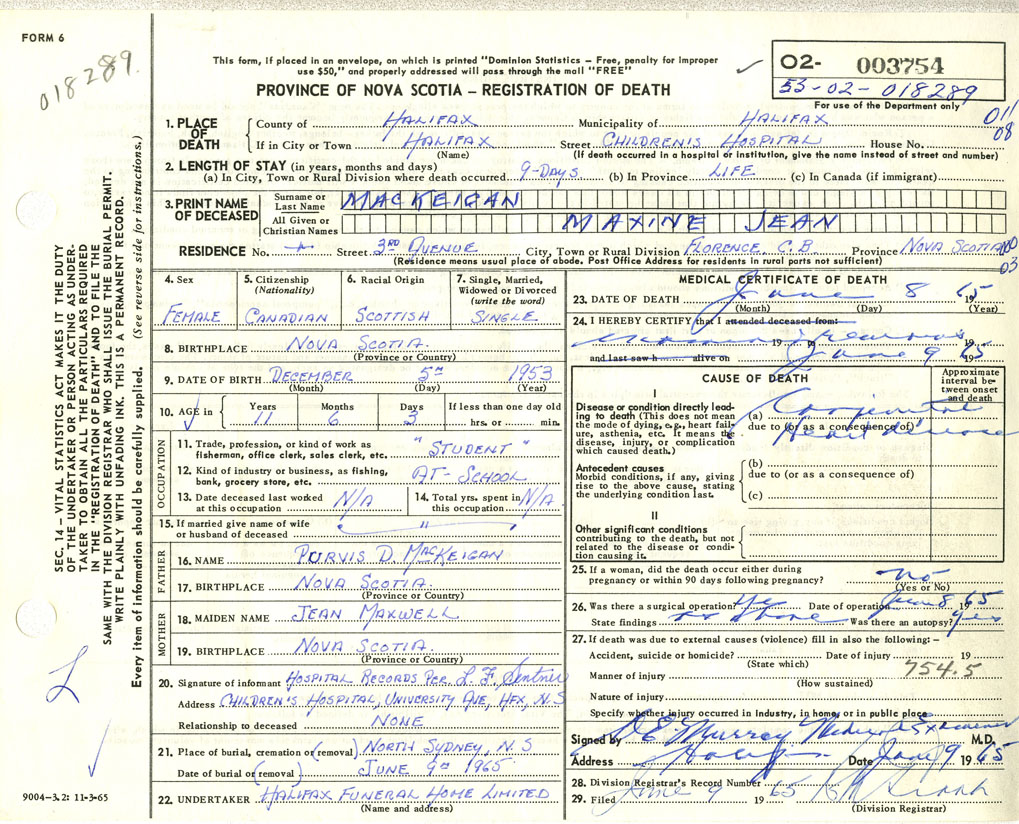 FORM 6
018289.
This form, if placed in an envelope, on which is printed "Dominion Statistics – Free, penalty for improper
use $50," and properly addressed will pass through the mail "FREE"
02- 003754
53-02-018289
For use of the Department only
PROVINCE OF NOVA SCOTIA – REGISTRATION OF DEATH
011
08
1. PLACE OF DEATH
County of HALIFAX Municipality of HALIFAX
If in City or Town HALIFAX Street CHILDREN'S HOSPITAL House No.
(Name) (If death occurred in a hospital or institution, give the name instead of street and number)
2. LENGTH OF STAY (in years, months and days)
(a) In City, Town or Rural Division where death occurred 9-DAYS (b) In Province LIFE (c) In Canada (if immigrant)
3. PRINT NAME OF DECEASED
Surname or Last Name MACKEIGAN
All Given or Christian Names MAXINE JEAN
RESIDENCE No. Street 3RD AVENUE City, Town or Rural Division FLORENCE, C.B Province NOVA SCOTIA
03
(Residence means usual place of abode. Post Office Address for residents in rural parts not sufficient)
4. Sex
FEMALE
5. Citizenship
(Nationality)
CANADIAN
6. Racial Origin
SCOTTISH
7. Single, Married,
Widowed or Divorced
(write the word)
SINGLE
8. BIRTHPLACE NOVA SCOTIA.
(Province or Country)
9. DATE OF BIRTH DECEMBER 5TH 1953
(Month) (Day) (Year)
10. AGE in
Years Months Days If less than one day old
11 6 3 hrs. or min.
OCCUPATION
11. Trade, profession, or kind of work as
fisherman, office clerk, sales clerk, etc. "STUDENT"
12. Kind of industry or business, as fishing,
bank, grocery store, etc. AT-SCHOOL
13. Date deceased last worked
at this occupation N/A
14. Total yrs. spent in
this occupation N/A
15. If married give name of wife
or husband of deceased "
FATHER
16. NAME PURVIS D. MACKEIGAN
17. BIRTHPLACE NOVA SCOTIA.
(Province or Country)
MOTHER
18. MAIDEN NAME JEAN MAXWELL
19. BIRTHPLACE NOVA SCOTIA.
(Province or Country)
20. Signature of informant HOSPITAL RECORDS PER. L.F. Sentner
Address CHILDREN'S HOSPITAL, UNIVERSITY AVE, HFX, N.S
Relationship to deceased NONE
21. Place of burial, cremation or (removal) NORTH SYDNEY, N.S
Date of burial or (removal) JUNE 9TH 1965
22. UNDERTAKER HALIFAX FUNERAL HOME LIMITED
(Name and address)
MEDICAL CERTIFICATE OF DEATH
23. DATE OF DEATH June 8 1965
(Month) (Day) (Year)
24. I HEREBY CERTIFY that I attended deceased from:
19
and last saw h alive on June 9 65
CAUSE OF DEATH
Approximate
interval be-
tween onset
and death
I
Disease or condition directly lead-
ing to death (This does not mean
the mode of dying, e.g., heart fail-
ure, asthenia, etc. It means the
disease, injury, or complication
which caused death.)
(a) Congenital
due to (or as a consequence of)
Heart disease
Antecedent causes
Morbid conditions, if any, giving
rise to the above cause, stating
the underlying condition last.
(b)
due to (or as a consequence of)
(c)
II
Other significant conditions
contributing to the death, but not
related to the disease or condi-
tion causing it.
25. If a woman, did the death occur either during
pregnancy or within 90 days following pregnancy? no
(Yes or No)
26. Was there a surgical operation? Yes Date of operation June 8 1965
State findings as above Was there an autopsy? Yes
27. If death was due to external causes (violence) fill in also the following: –
Accident, suicide or homicide? Date of injury 19
(State which)
Manner of injury 754.5
(How sustained)
Nature of injury
Specify whether injury occurred in Industry, in home, or in public place
Signed by D E Murray Medical Examiner M.D.
Address Halifax Date June 9 1965
28. Division Registrar's Record Number
29. Filed June 9 1965
(Division Registrar)
SEC. 14 – VITAL STATISTICS ACT MAKES IT THE DUTY
OF THE UNDERTAKER OR PERSON ACTING AS UNDER-
TAKER TO OBTAIN ALL THE PARTICULARS REQUIRED
IN THE "REGISTRATION OF DEATH" AND TO FILE THE
SAME WITH THE DIVISION REGISTRAR WHO SHALL ISSUE THE BURIAL PERMIT.
WRITE PLAINLY WITH UNFADING INK. THIS IS A PERMANENT RECORD.
Every item of information should be carefully supplied. (See reverse side for instructions.)
9004-3.2: 11-3-65